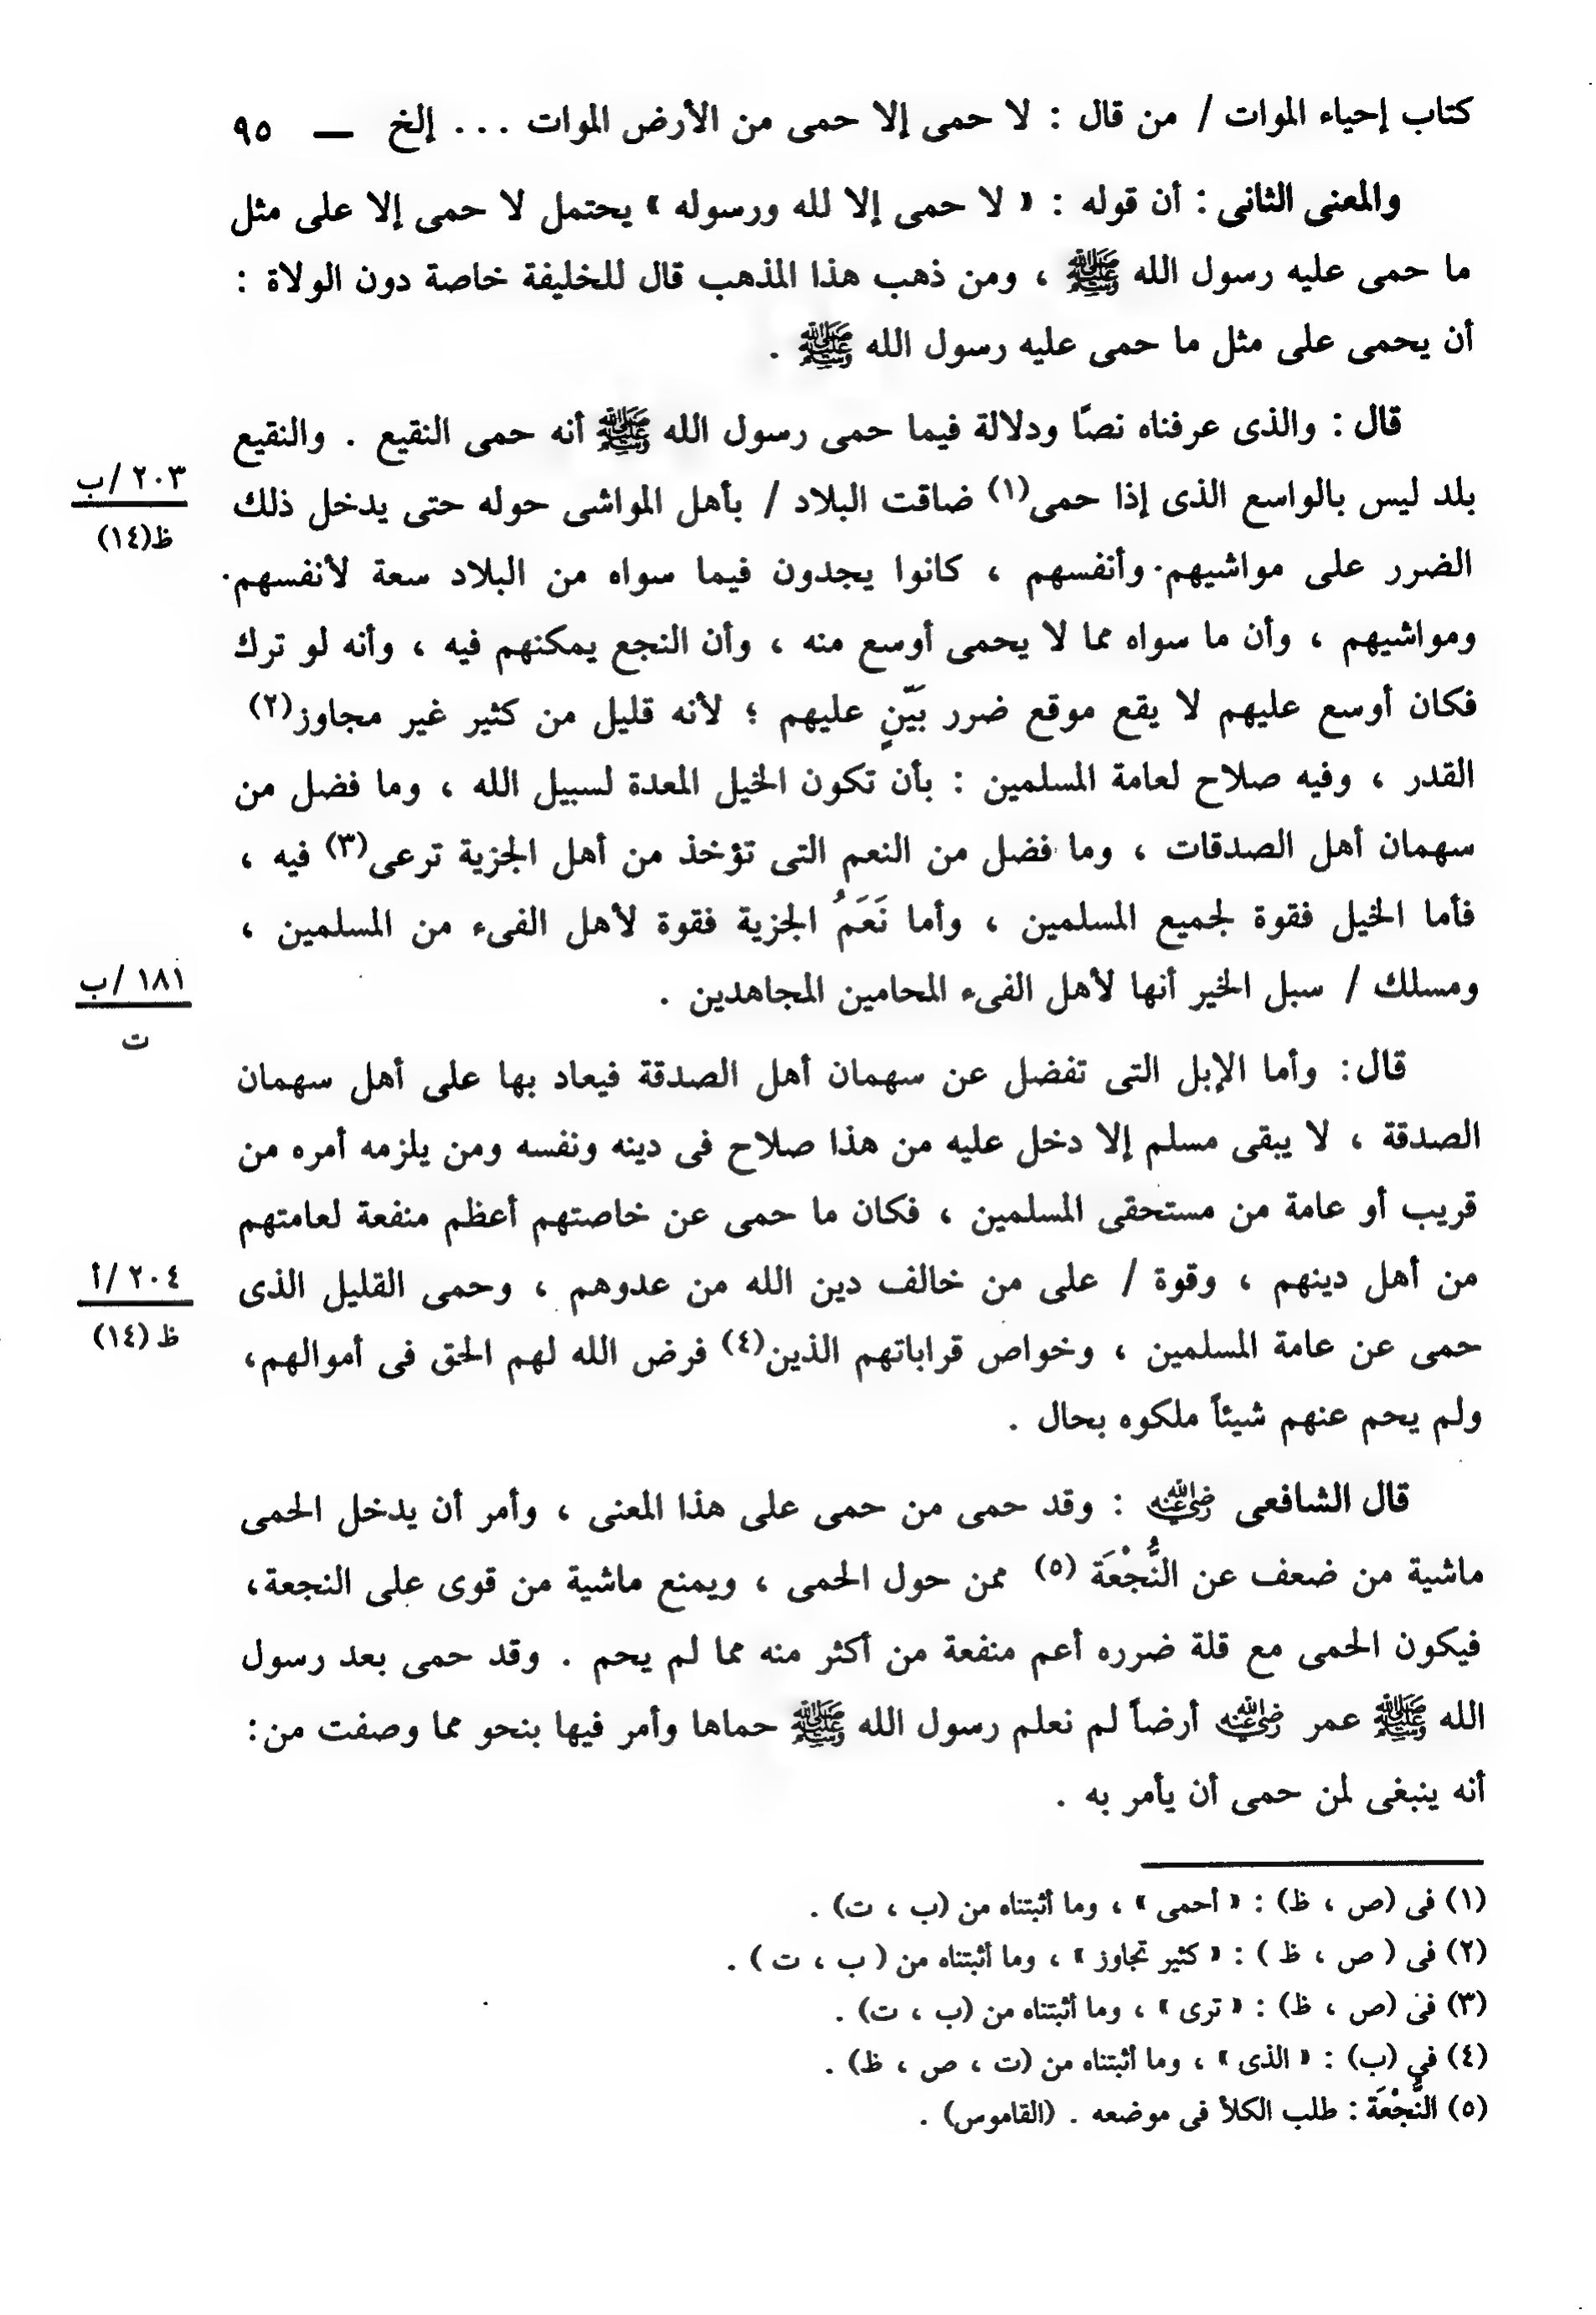 كتاب إحياء الموات / من قال : لا حمى إلا حمى من الأرض الموات ... إلخ — ٩٥
والمعنى الثانى : أن قوله : « لا حمى إلا لله ورسوله » يحتمل لا حمى إلا على مثل
ما حمى عليه رسول الله ﷺ ، ومن ذهب هذا المذهب قال للخليفة خاصة دون الولاة :
أن يحمى على مثل ما حمى عليه رسول الله ﷺ .
قال : والذى عرفناه نصًا ودلالة فيما حمى رسول الله ﷺ أنه حمى النقيع . والنقيع
بلد ليس بالواسع الذى إذا حمى(١) ضاقت البلاد / بأهل المواشى حوله حتى يدخل ذلك
٢٠٣ /ب
ظ(١٤)
الضرر على مواشيهم وأنفسهم ، كانوا يجدون فيما سواه من البلاد سعة لأنفسهم
ومواشيهم ، وأن ما سواه مما لا يحمى أوسع منه ، وأن النجع يمكنهم فيه ، وأنه لو ترك
فكان أوسع عليهم لا يقع موقع ضرر بَيّنٍ عليهم ؛ لأنه قليل من كثير غير مجاوز(٢)
القدر ، وفيه صلاح لعامة المسلمين : بأن تكون الخيل المعدة لسبيل الله ، وما فضل من
سهمان أهل الصدقات ، وما فضل من النعم التى تؤخذ من أهل الجزية ترعى(٣) فيه ،
فأما الخيل فقوة لجميع المسلمين ، وأما نَعَمُ الجزية فقوة لأهل الفىء من المسلمين ،
ومسلك / سبل الخير أنها لأهل الفىء المحامين المجاهدين .
١٨١ /ب
ت
قال : وأما الإبل التى تفضل عن سهمان أهل الصدقة فيعاد بها على أهل سهمان
الصدقة ، لا يبقى مسلم إلا دخل عليه من هذا صلاح فى دينه ونفسه ومن يلزمه أمره من
قريب أو عامة من مستحقى المسلمين ، فكان ما حمى عن خاصتهم أعظم منفعة لعامتهم
من أهل دينهم ، وقوة / على من خالف دين الله من عدوهم ، وحمى القليل الذى
٢٠٤ /أ
ظ (١٤)
حمى عن عامة المسلمين ، وخواص قراباتهم الذين(٤) فرض الله لهم الحق فى أموالهم،
ولم يحم عنهم شيئاً ملكوه بحال .
قال الشافعى رضي الله عنه : وقد حمى من حمى على هذا المعنى ، وأمر أن يدخل الحمى
ماشية من ضعف عن النُّجْعَة (٥) ممن حول الحمى ، ويمنع ماشية من قوى على النجعة،
فيكون الحمى مع قلة ضرره أعم منفعة من أكثر منه مما لم يحم . وقد حمى بعد رسول
الله ﷺ عمر رضي الله عنه أرضاً لم نعلم رسول الله ﷺ حماها وأمر فيها بنحو مما وصفت من:
أنه ينبغى لمن حمى أن يأمر به .
(١) فى (ص ، ظ) : « أحمى » ، وما أثبتناه من (ب ، ت) .
(٢) فى ( ص ، ظ ) : « كثير تجاوز » ، وما أثبتناه من ( ب ، ت ) .
(٣) فى (ص ، ظ) : « ترى » ، وما أثبتناه من (ب ، ت) .
(٤) في (ب) : « الذى » ، وما أثبتناه من (ت ، ص ، ظ) .
(٥) النُّجْعَة : طلب الكلأ فى موضعه . (القاموس) .